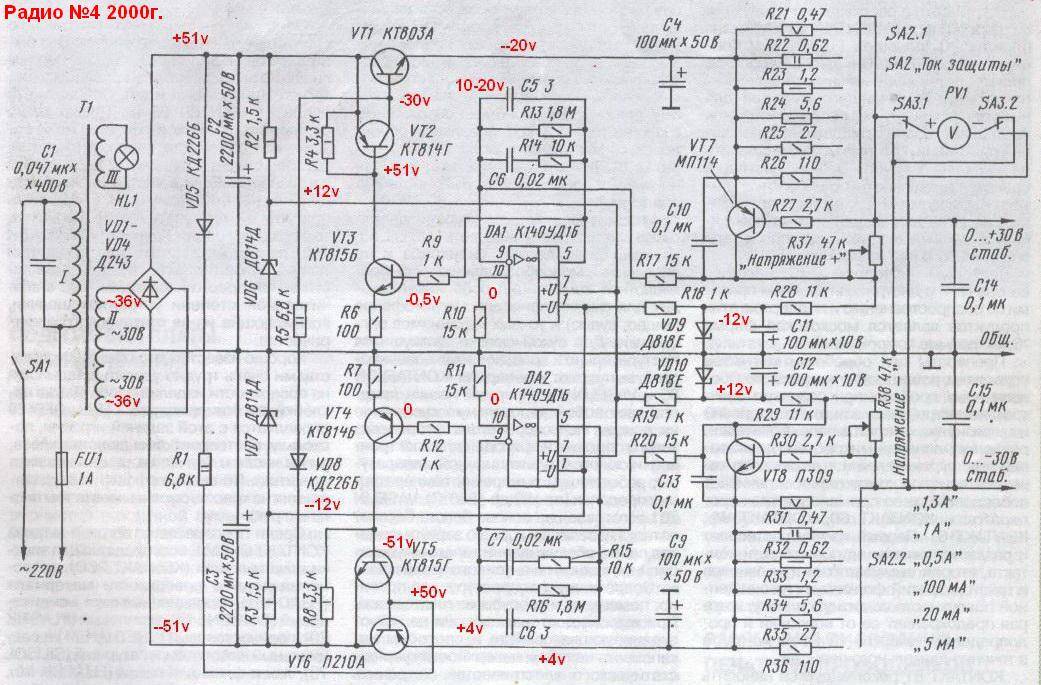 Радио №4 2000г.
+51v
VT1 КТ803А
--20v
C4
100 мк × 50 В
R21 0,47
R22 0,62
R23 1,2
R24 5,6
R25 27
R26 110
SA2.1
SA2 „Ток защиты"
PV1
SA3.1
SA3.2
+ V −
T1
C1
0,047 мк×
×400 В
III
HL1
VD1–
VD4
Д243
I
~36v
II
~30В
~30В
~36v
SA1
FU1
1А
~220В
VD5 КД226Б
C2
2200 мк × 50 В
R2 1,5 к
-30v
R4 3,3 к
VT2
КТ814Г
+51v
+12v
10-20v
C5 3
R13 1,8 М
R14 10 к
C6 0,02 мк
VT7
МП114
C10
0,1 мк
R27 2,7 к
R37 47 к
„Напряжение +"
0...+30В
стаб.
VD6 Д814Д
R5 6,8 к
VT3
КТ815Б
R9
1 к
-0,5v
DA1 К140УД1Б
9
10
▷∞
5
+U
7
-U
1
R17 15 к
R18 1 к
R28 11 к
C14
0,1 мк
R6
100
R10
15к
0
VD9
Д818Е
-12v
C11
100 мк × 10 В
Общ.
R7
100
R11
15к
0
DA2
К140УД1Б
VD10
Д818Е
+12v
C12
100 мк × 10 В
R38 47 к
„Напряжение −"
C15
0,1 мк
VD7 Д814Д
VT4
КТ814Б
0
R12
1 к
10
9
▷∞
5
+U
7
-U
1
R19 1 к
R29 11 к
R20 15 к
C13
0,1 мк
R30 2,7 к
VT8 П309
0...−30В
стаб.
R1
6,8к
VD8
КД226Б
--12v
C3
2200 мк × 50 В
R3 1,5 к
R8 3,3 к
-51v
VT5
КТ815Г
+50v
-51v
VT6 П210А
C7 0,02 мк
R15
10 к
R16 1,8 М
C8 3
+4v
+4v
C9
100 мк
× 50 В
R31 0,47
R32 0,62
R33 1,2
R34 5,6
R35 27
R36 110
SA2.2
„1,3 А"
„1 А"
„0,5 А"
„100 мА"
„20 мА"
„5 мА"